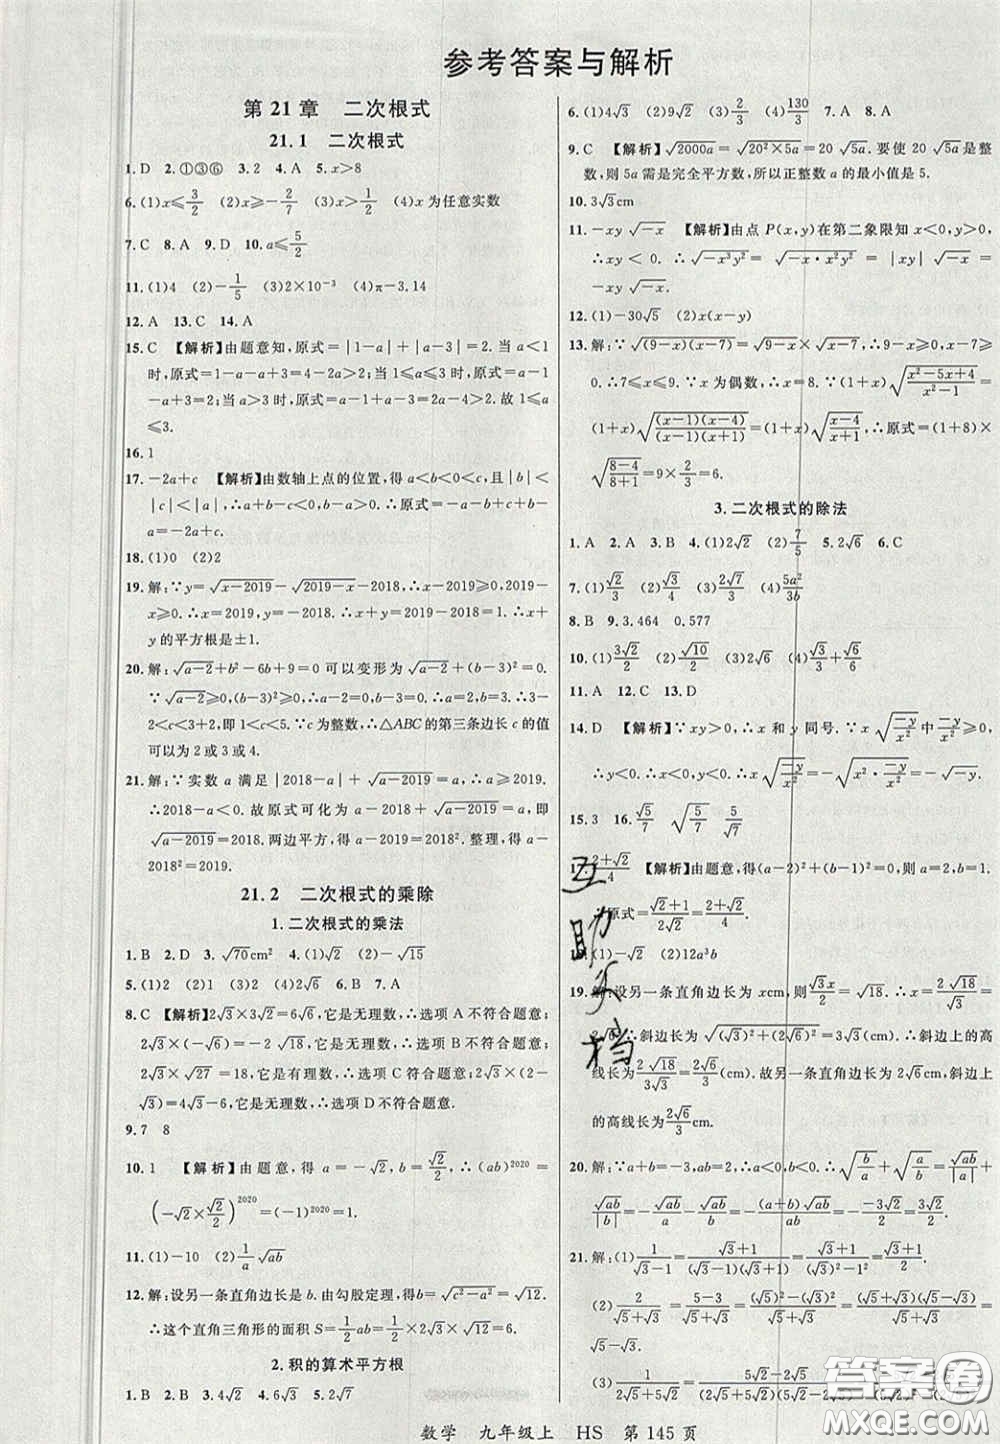 参考答案与解析
第21章 二次根式
21.1 二次根式
1.D 2.①③⑥ 3.2 4.A 5.x>8
6.(1)x≤3/2 (2)x≥-2/7 (3)x>1/2 (4)x为任意实数
7.C 8.A 9.D 10.a≤5/2
11.(1)4 (2)-1/5 (3)2×10⁻³ (4)π-3.14
12.A 13.C 14.A
15.C 【解析】由题意知,原式=|1-a|+|a-3|=2.当a<1
时,原式=1-a+3-a=4-2a;当1≤a≤3时,原式=a-1
-a+3=2;当a>3时,原式=a-1+a-3=2a-4.故1≤a
≤3.
16.1
17.-2a+c 【解析】由数轴上点的位置,得a<b<0<c,且|b|<
|c|<|a|,∴a+b-c<0,b-c<0.∴原式=-a-b+c-a+b
=-2a+c.
18.(1)0 (2)2
19.解:∵y=√(x-2019)-√(2019-x)-2018,∴x-2019≥0,2019-
x≥0.∴x=2019,y=-2018.∴x+y=2019-2018=1.∴x+
y的平方根是±1.
20.解:√(a-2)+b²-6b+9=0可以变形为√(a-2)+(b-3)²=0.
∵√(a-2)≥0,(b-3)²≥0,∴a-2=0,b-3=0.∴a=2,b=3.∴3-
2<c<3+2,即1<c<5.∵c为整数,∴△ABC的第三条边长c的值
可以为2或3或4.
21.解:∵实数a满足|2018-a|+√(a-2019)=a,∴a≥2019.
∴2018-a<0.故原式可化为a-2018+√(a-2019)=a,即
√(a-2019)=2018.两边平方,得a-2019=2018².整理,得a
-2018²=2019.
21.2 二次根式的乘除
1.二次根式的乘法
1.B 2.D 3.√70cm² 4.(1)√2 (2)-√15
5.(1)2 (2)1 (3)4 6.B 7.A
8.C 【解析】2√3×3√2=6√6,它是无理数,∴选项A不符合题意;
2√3×(-√6)=-2√18,它是无理数,∴选项B不符合题意;
2√3×√27=18,它是有理数,∴选项C符合题意;2√3×(2-
√3)=4√3-6,它是无理数,∴选项D不符合题意.
9.7 8
10.1 【解析】由题意,得a=-√2,b=√2/2,∴(ab)²⁰²⁰=
(-√2×√2/2)²⁰²⁰=(-1)²⁰²⁰=1.
11.(1)-10 (2)1/a√ab
12.解:设另一条直角边长是b.由勾股定理,得b=√(c²-a²)=√12,
∴这个直角三角形的面积S=1/2ab=1/2×2√3×√12=6.
2.积的算术平方根
1.B 2.B 3.A 4.4√2 5.2√7
6.(1)4√3 (2)9√2 (3)2/3 (4)130/3 7.A 8.A
9.C 【解析】√2000a=√(20²×5a)=20√5a.要使20√5a是整
数,则5a需是完全平方数,所以正整数a的最小值是5.
10.3√3cm
11.-xy√-x 【解析】由点P(x,y)在第二象限知x<0,y>0,
∴xy<0.∴√(-x³y²)=√(-x·x²y²)=|xy|√-x=
-xy√-x.
12.(1)-30√5 (2)x(x-y)
13.解:∵√((9-x)(x-7))=√(9-x)×√(x-7),∴9-x≥0,x-7≥
0.∴7≤x≤9.∵x为偶数,∴x=8.∵(1+x)√((x²-5x+4)/(x²-1))=
(1+x)√((x-1)(x-4)/((x-1)(x+1)))=(1+x)√((x-4)/(x+1)),∴原式=(1+8)×
√((8-4)/(8+1))=9×2/3=6.
3.二次根式的除法
1.A 2.A 3.B 4.(1)2√2 (2)7/5 5.2√6 6.C
7.(1)√2/3 (2)√3/4 (3)2√7/3 (4)5a²/3b
8.B 9.3.464 0.577
10.(1)3√2/2 (2)√10/2 (3)2√6 (4)√3/3+√6
11.A 12.C 13.D
14.D 【解析】∵xy>0,∴x和y同号.∵x√(-y/x²)中-y/x²≥0,
∴x<0,y<0.∴x√(-y/x²)=-√(x²·-y/x²)=-√-y.
15.3 16.√5/7 √(5/7) 5/√7
17.(2+√2)/4 【解析】由题意,得(a-2)²+(b-1)²=0,则a=2,b=1.
∴原式=(√2+1)/(2√2)=(2+√2)/4.
18.(1)-√2 (2)12a³b
19.解:设另一条直角边长为xcm,则√3x/2=√18.∴x=2√18/√3=
2√6.∴斜边长为√((√3)²+(2√6)²)=3√3(cm).∴斜边上的高
线长为2√18/3√3=2√6/3(cm).故另一条直角边长为2√6cm,斜边上
的高线长为2√6/3cm.
20.解:∵a+b=-3,ab=2,∴a<0,b<0.∴√(b/a)+√(a/b)=√ab/|a|+
√ab/|b|=-√ab/a-√ab/b=-(a+b)√ab/ab=-(-3√2)/2=3√2/2.
21.解:(1)1/(√3-1)=(√3+1)/((√3-1)(√3+1))=(√3+1)/(3-1)=(√3+1)/2.
(2)2/(√5+√3)=2(√5-√3)/((√5+√3)(√5-√3))=√5-√3.
(3)1/(5√2+2√5)=(5√2-2√5)/((5√2+2√5)(5√2-2√5))
互助文档
答案圈
MXQE.COM
数学 九年级上 HS 第145页